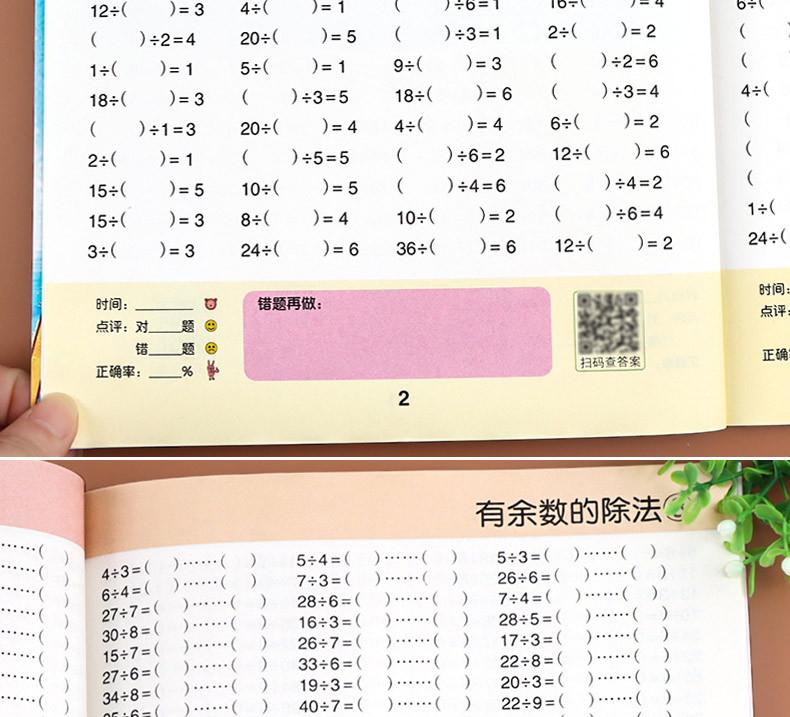 12÷( )=3 4÷( )=1 ( )÷6=1 16÷( )=4 6÷(
( )÷2=4 20÷( )=5 ( )÷3=1 2÷( )=2 (
1÷( )=1 5÷( )=1 9÷( )=3 ( )÷2=6 (
18÷( )=3 ( )÷3=5 18÷( )=6 ( )÷3=4 4÷(
( )÷1=3 20÷( )=4 4÷( )=4 6÷( )=2 (
2÷( )=1 ( )÷5=5 ( )÷6=2 12÷( )=6 (
15÷( )=5 10÷( )=5 ( )÷4=6 ( )÷4=2 (
15÷( )=3 8÷( )=4 10÷( )=2 ( )÷6=4 1÷(
3÷( )=3 24÷( )=6 36÷( )=6 12÷( )=2 24÷(
时间：______ 错题再做： 时间：
点评：对____题 点评：
错____题
正确率：____% 扫码查答案 正确
2
有余数的除法
4÷3=( )……( ) 5÷4=( )……( ) 5÷3=( )……( )
6÷4=( )……( ) 7÷3=( )……( ) 26÷6=( )……( )
27÷7=( )……( ) 28÷6=( )……( ) 7÷4=( )……( )
30÷8=( )……( ) 16÷3=( )……( ) 28÷5=( )……( )
15÷7=( )……( ) 26÷7=( )……( ) 17÷3=( )……( )
27÷6=( )……( ) 33÷6=( )……( ) 22÷8=( )……( )
34÷8=( )……( ) 19÷3=( )……( ) 20÷3=( )……( )
40÷7=( )……( ) 22÷9=( )……( )